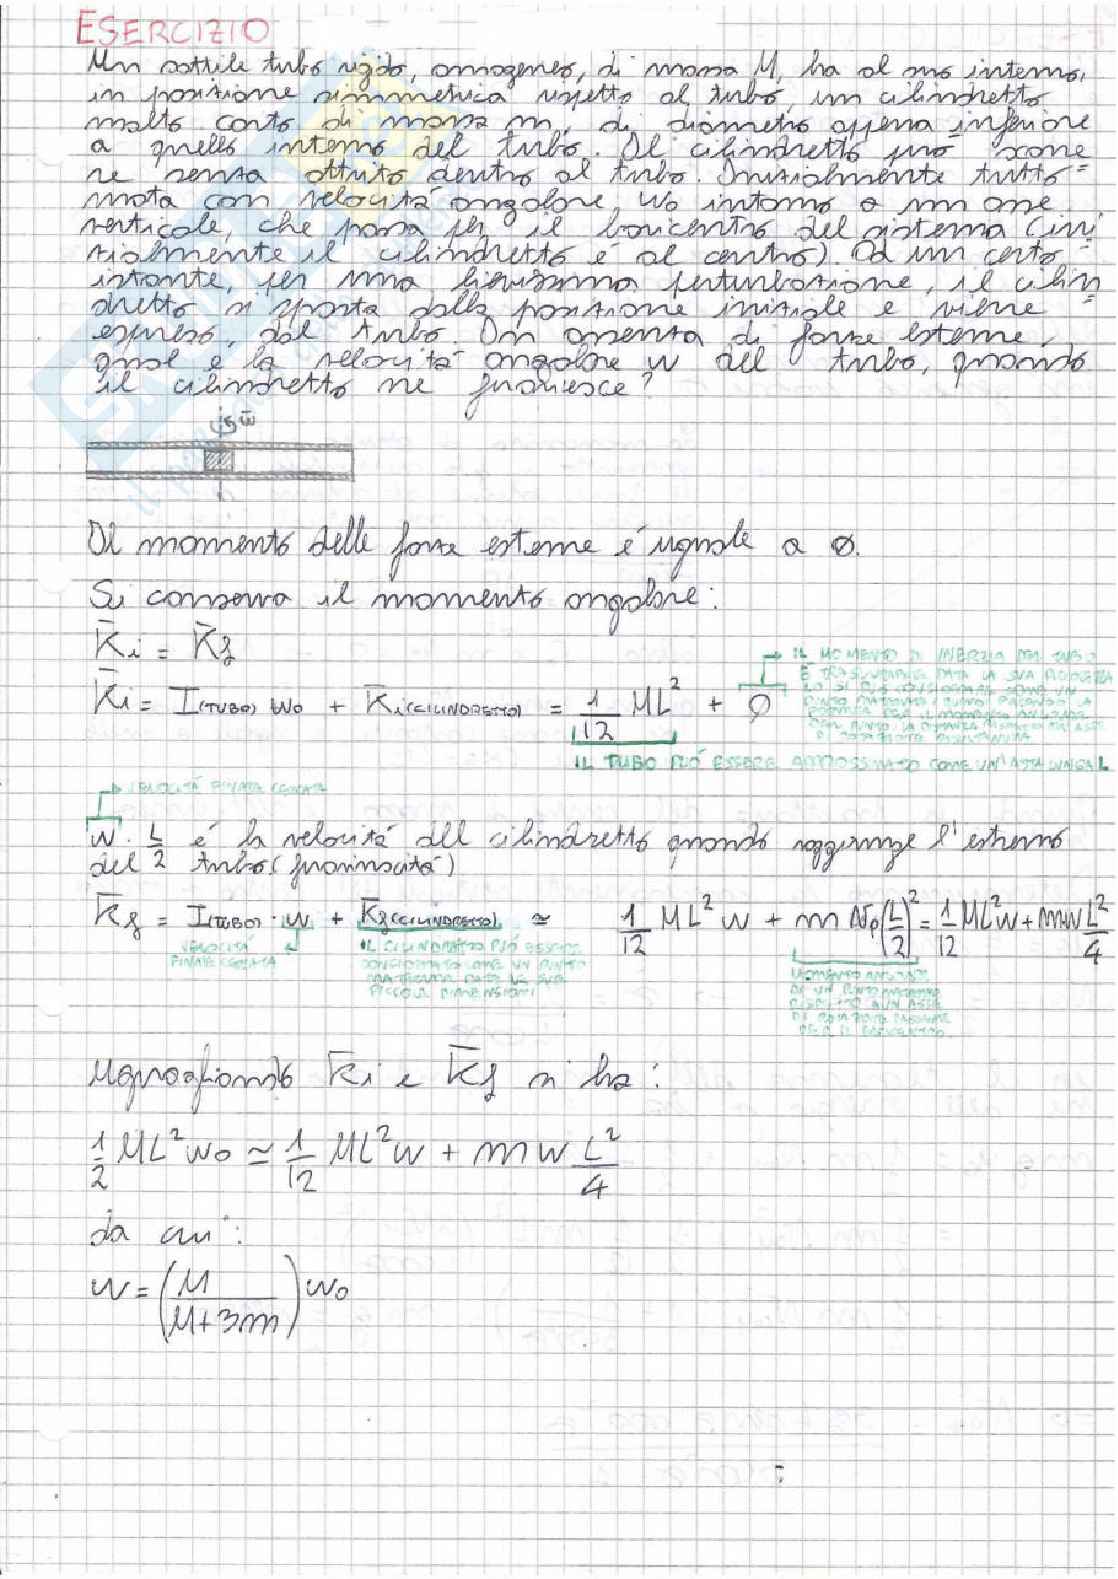 ESERCIZIO
Un sottile tubo rigido, omogeneo, di massa M, ha al suo interno,
in posizione simmetrica rispetto al tubo, un cilindretto
molto corto di massa m, di diametro appena inferiore
a quello interno del tubo. Il cilindretto può scorre
re senza attrito dentro al tubo. Inizialmente tutto
ruota con velocità angolare W0 intorno a un asse
verticale, che passa per il baricentro del sistema (ini
zialmente il cilindretto é al centro). Ad un certo
istante, per una lievissima perturbazione, il cilin
dretto si sposta dalla posizione iniziale e viene
espulso, dal tubo. In assenza di forze esterne,
qual e la velocità angolare w del tubo, quando
il cilindretto ne fuoriesce?
ω̄
Il momento delle forze esterne é uguale a ∅.
Si conserva il momento angolare:
K̄i = K̄f
IL MOMENTO DI INERZIA DEL TUBO
K̄i = I(TUBO) W0 + K̄i(CILINDRETTO) = 1/12 ML² + ∅
IL TUBO PUÓ ESSERE APPROSSIMATO COME UN'ASTA LUNGA L
VELOCITÁ FINALE CERCATA
W · L/2 é la velocitá del cilindretto quando raggiunge l'estremo
del tubo (fuoriuscitá)
K̄f = I(TUBO) · W + K̄f(CILINDRETTO) ≃ 1/12 ML² W + m (L/2)² = 1/12 ML² W + mW L²/4
VELOCITÁ
FINALE CERCATA
IL CILINDRETTO PUÓ ESSERE
CONSIDERATO COME UN PUNTO
MATERIALE DATE LE SUE
PICCOLE DIMENSIONI
MOMENTO ANGOLARE
DI UN PUNTO MATERIALE
RISPETTO A UN ASSE
DI ROTAZIONE PASSANTE
PER IL BARICENTRO
Uguagliando K̄i e K̄f si ha:
1/2 ML² W0 ≃ 1/12 ML² W + m W L²/4
da cui:
W = (M/(M+3m)) W0